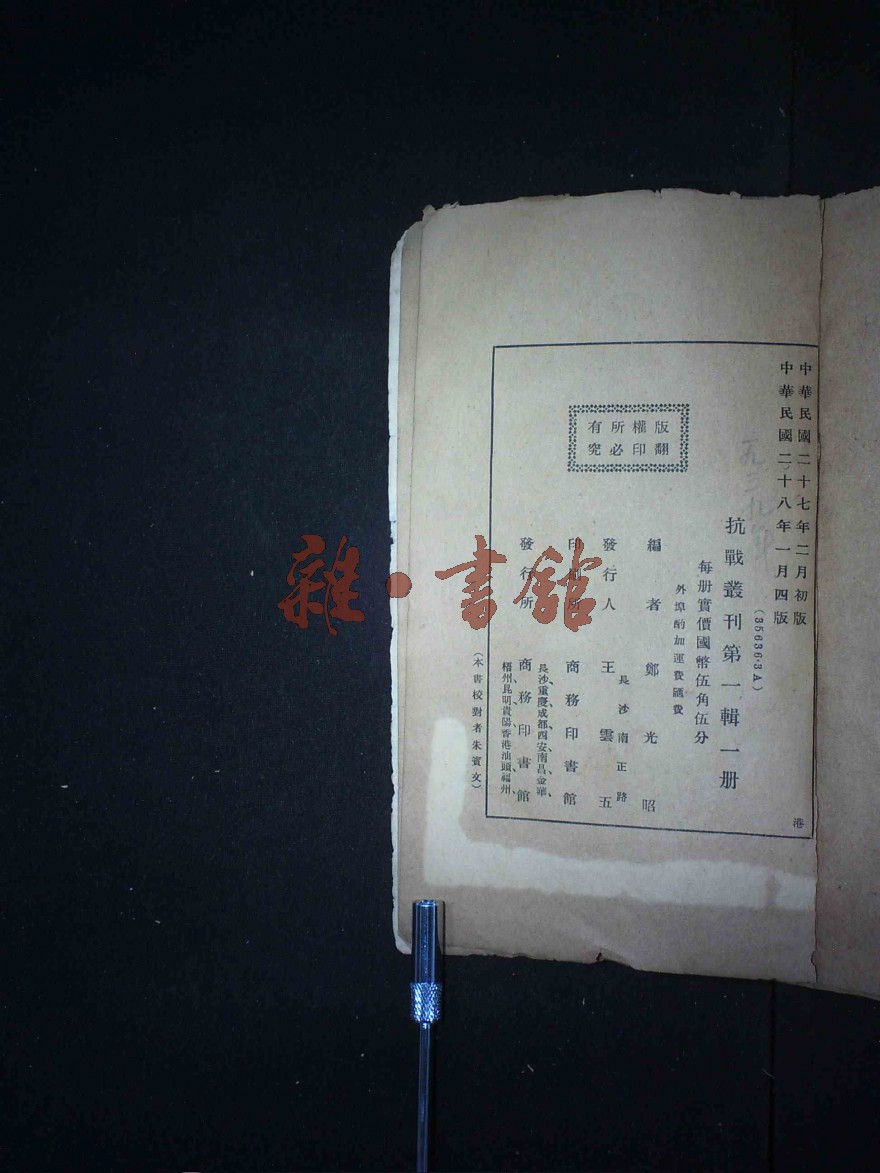 中華民國二十七年二月初版
中華民國二十八年一月四版
(35636·3A)
抗戰叢刊第一輯一册
每册實價國幣伍角伍分
外埠酌加運費匯費
版權所有
翻印必究
編者 鄭光昭
長沙南正路
發行人 王雲五
印刷所 商務印書館
長沙、重慶、成都、西安、南昌、金華、
梧州、昆明、貴陽、香港、汕頭、福州、
發行所 商務印書館
(本書校對者朱賓文)
港
一九三九年
雜·書館